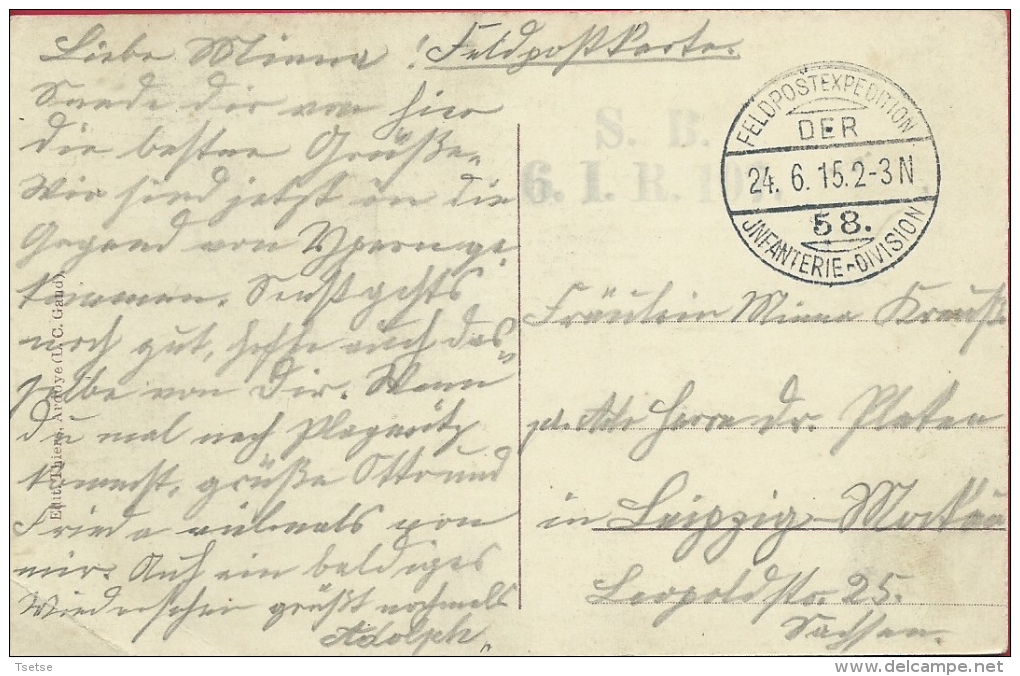 Liebe Minna! Feldpostkarte.
Sende dir von hier
die besten Grüße.
Wir sind jetzt in die
Gegend von Ypern ge-
kommen. Sonst gehts
noch gut, hoffe auch das-
selbe von Dir. Wenn
du mal nach Plagwitz
kommst, grüße Otto und
Frieda vielmals von
mir. Auf ein baldiges
Wiedersehen grüßt nochmals
Adolph
Edit. Thiers, Ardoye (D. C. Gand)
S. B.
6. I. R. 10
FELDPOSTEXPEDITION
DER
24. 6. 15. 2-3 N
58.
JNFANTERIE-DIVISION
Fräulein Minna Krauß
Herrn Dr. Platen
in Leipzig-Möckern
Leopoldstr. 25.
Sachsen.
Tsetse
delcampe.net